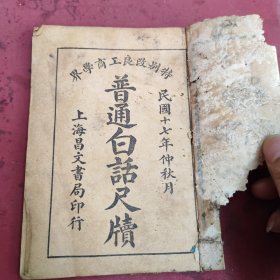 特別改良工商學界
民國十七年仲秋月
普通白話尺牘
上海昌文書局印行